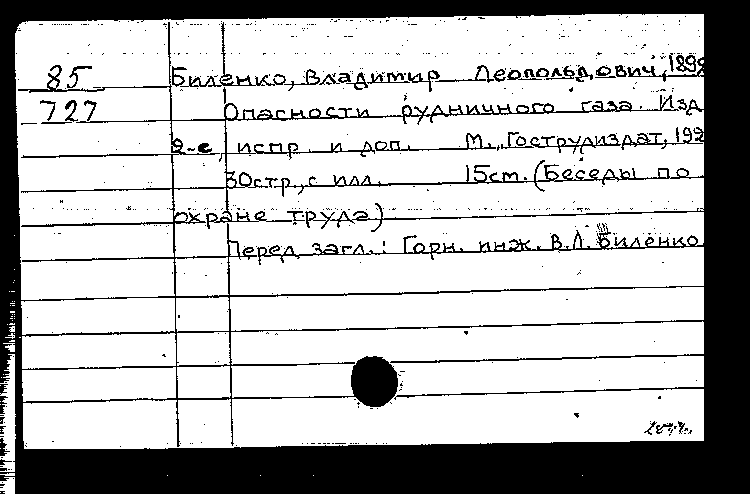 85
727
Биленко, Владимир Леопольдович, 1898
Опасности рудничного газа. Изд.
2-е, испр. и доп. М., Гострудиздат, 192
30стр., с илл. 15см. (Беседы по
охране труда)
Перед загл.: Горн. инж. В.Л. Биленко